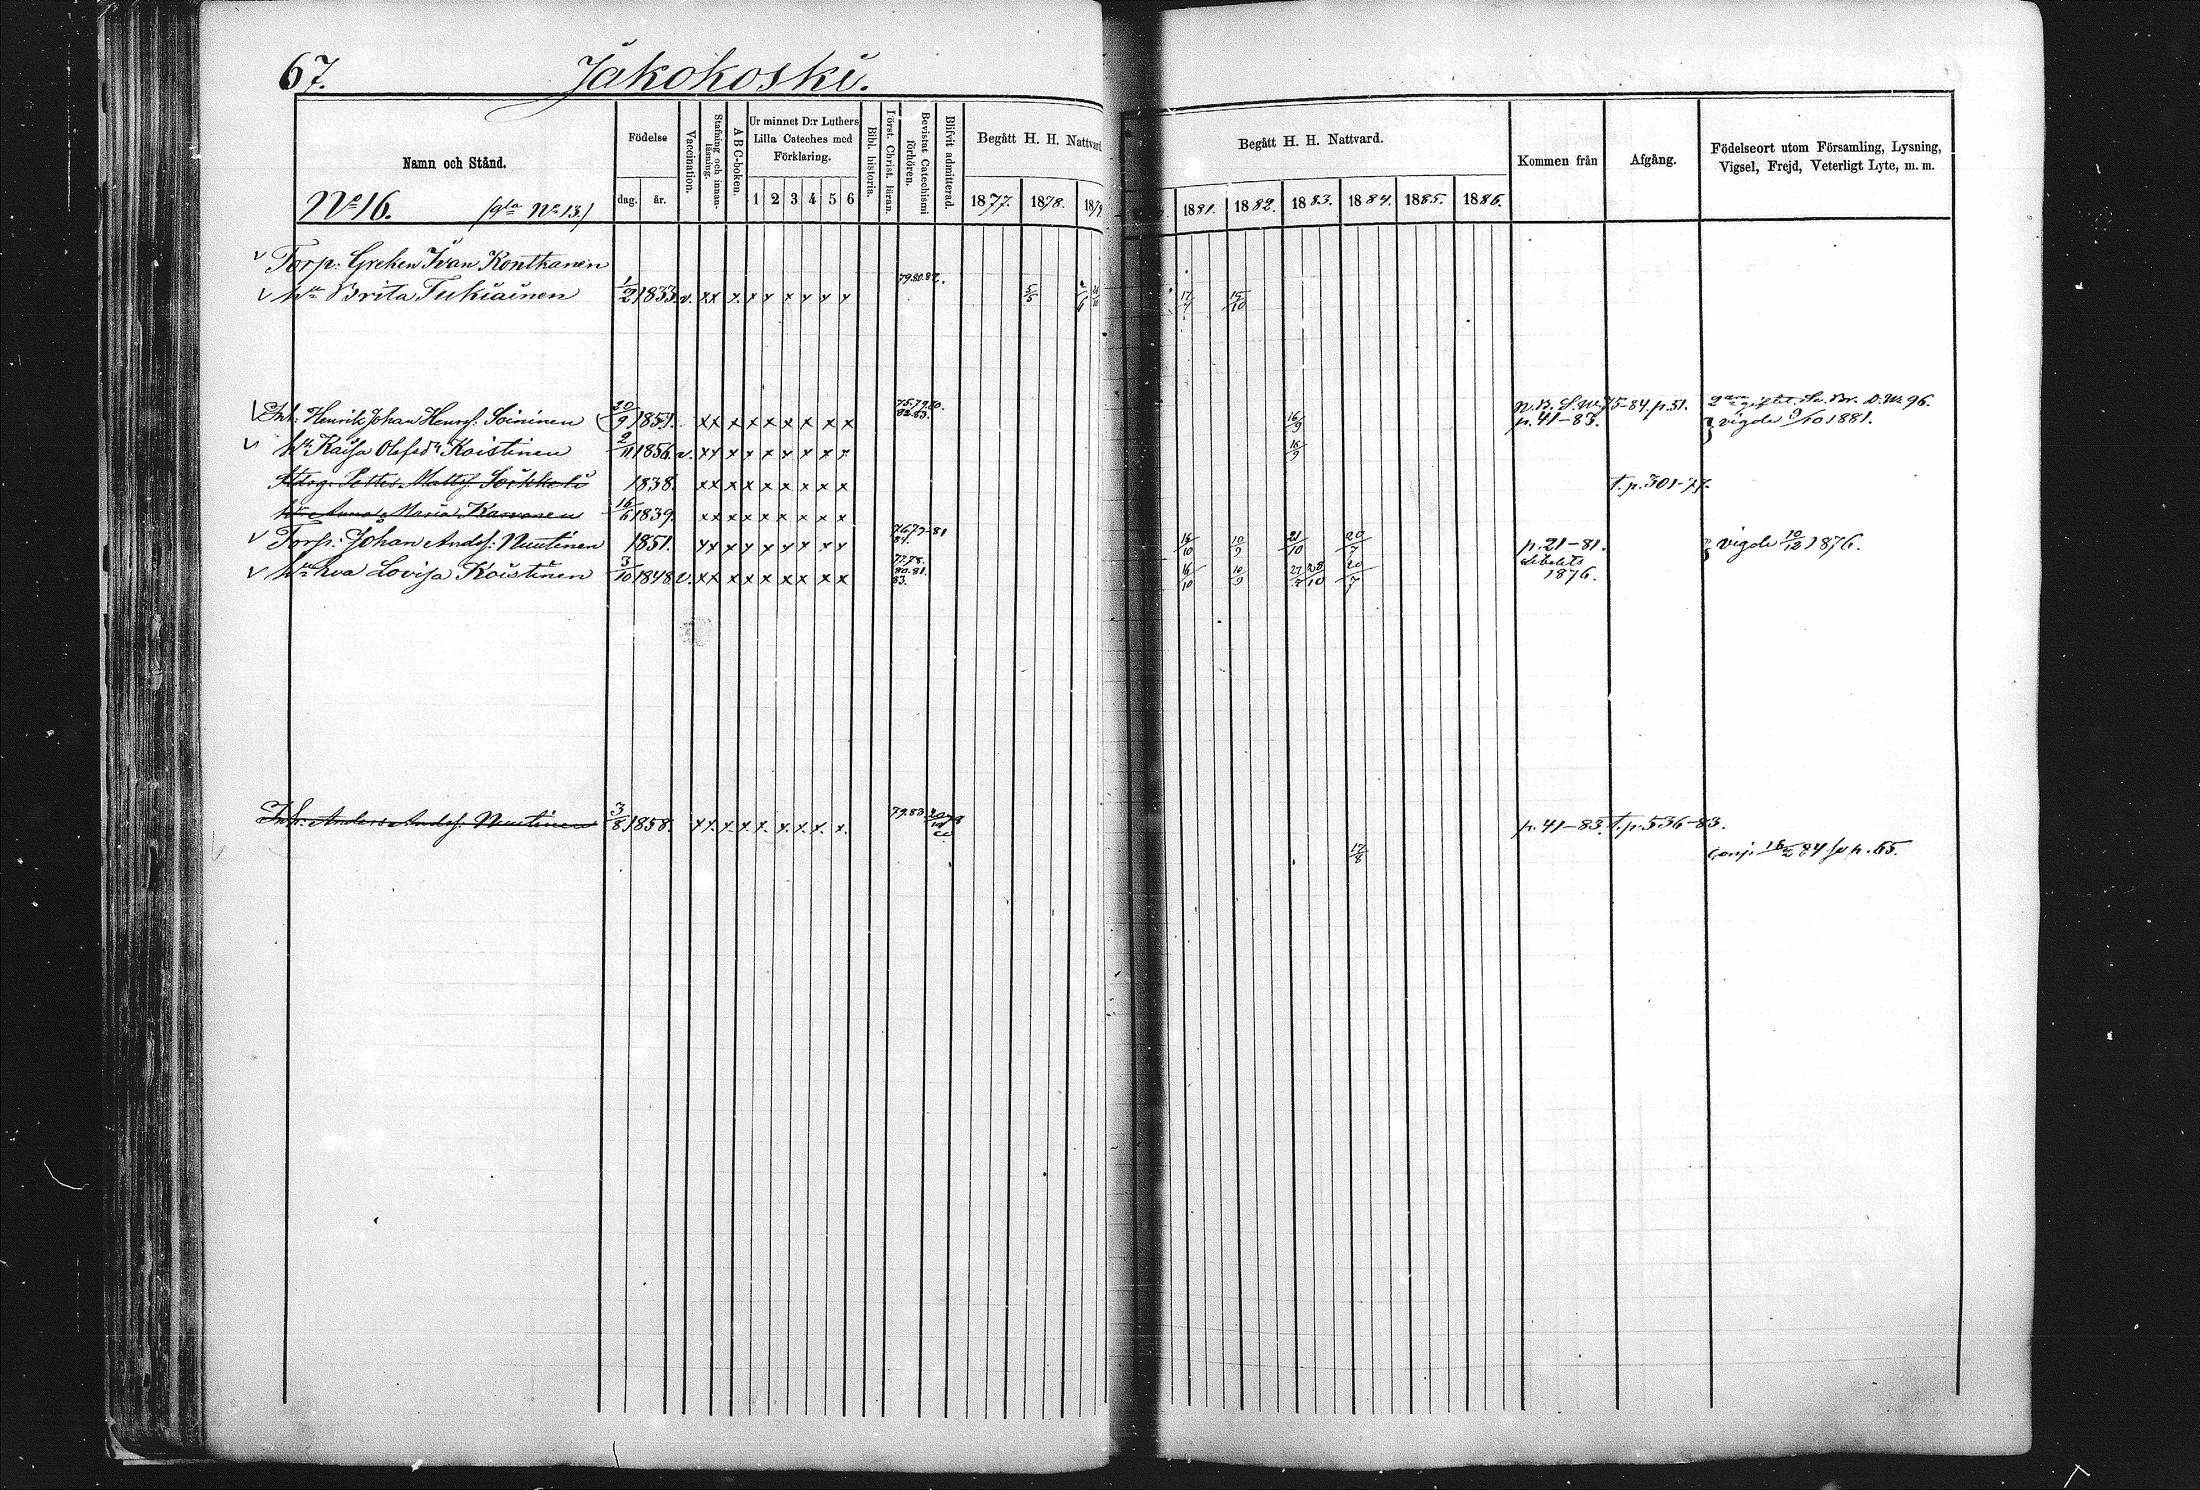 67. Jakokoski.
Namn och Stånd.
Födelse
dag. år.
Vaccination.
Stafning och innanläsning.
A B C-boken.
Ur minnet D:r Luthers Lilla Cateches med Förklaring.
1 2 3 4 5 6
Bibl. historia.
Först. Christ. läran.
Bevistat Catechismi förhören.
Blifvit admitterad.
Begått H. H. Nattvard
1877. 1878. 1879
Begått H. H. Nattvard.
1881. 1882. 1883. 1884. 1885. 1886.
Kommen från
Afgång.
Födelseort utom Församling, Lysning, Vigsel, Frejd, Veterligt Lyte, m. m.
No 16. (gla No 13.)
v Torp. Greken Ivan Kontkanen
v Hu Brita Tukiainen 1/2 1833. v. xx x. x x x x x x 79.80.82. 5/5 17/7 15/10
v Inh. Henrik Johan Henrs. Soininen 20/9 1859. xx x x x x x x x 75.79.80. 82.83. 16/9 N.B. p. 41-83. 75-84. p. 51. vigde 9/10 1881.
v Hu Kaisa Olofsdr Koistinen 2/11 1856. v. xx x x x x x x x 16/9
Petter Matts. 1838. xx x x x x x x x t. p. 301-77.
Hu Anna Maria Karvonen 16/6 1839. xx x x x x x x x
v Torp: Johan Anders: Nuutinen 1851. xx x x x x x x x 76.79-81 84. 16/10 10/9 21/10 20/7 p. 21-81. vigde 10/12 1876.
v Hu Eva Lovisa Koistinen 3/10 1848. v. xx x x x x x x x 77.78. 80.81. 83. 16/10 10/9 20/7 Libelits 1876.
Inh: Anders Anders. Nuutinen 3/8 1858. xx. x x x. x x x. x. 79.83 p. 41-83. t. p. 536-83.
17/8 84 p. 65.